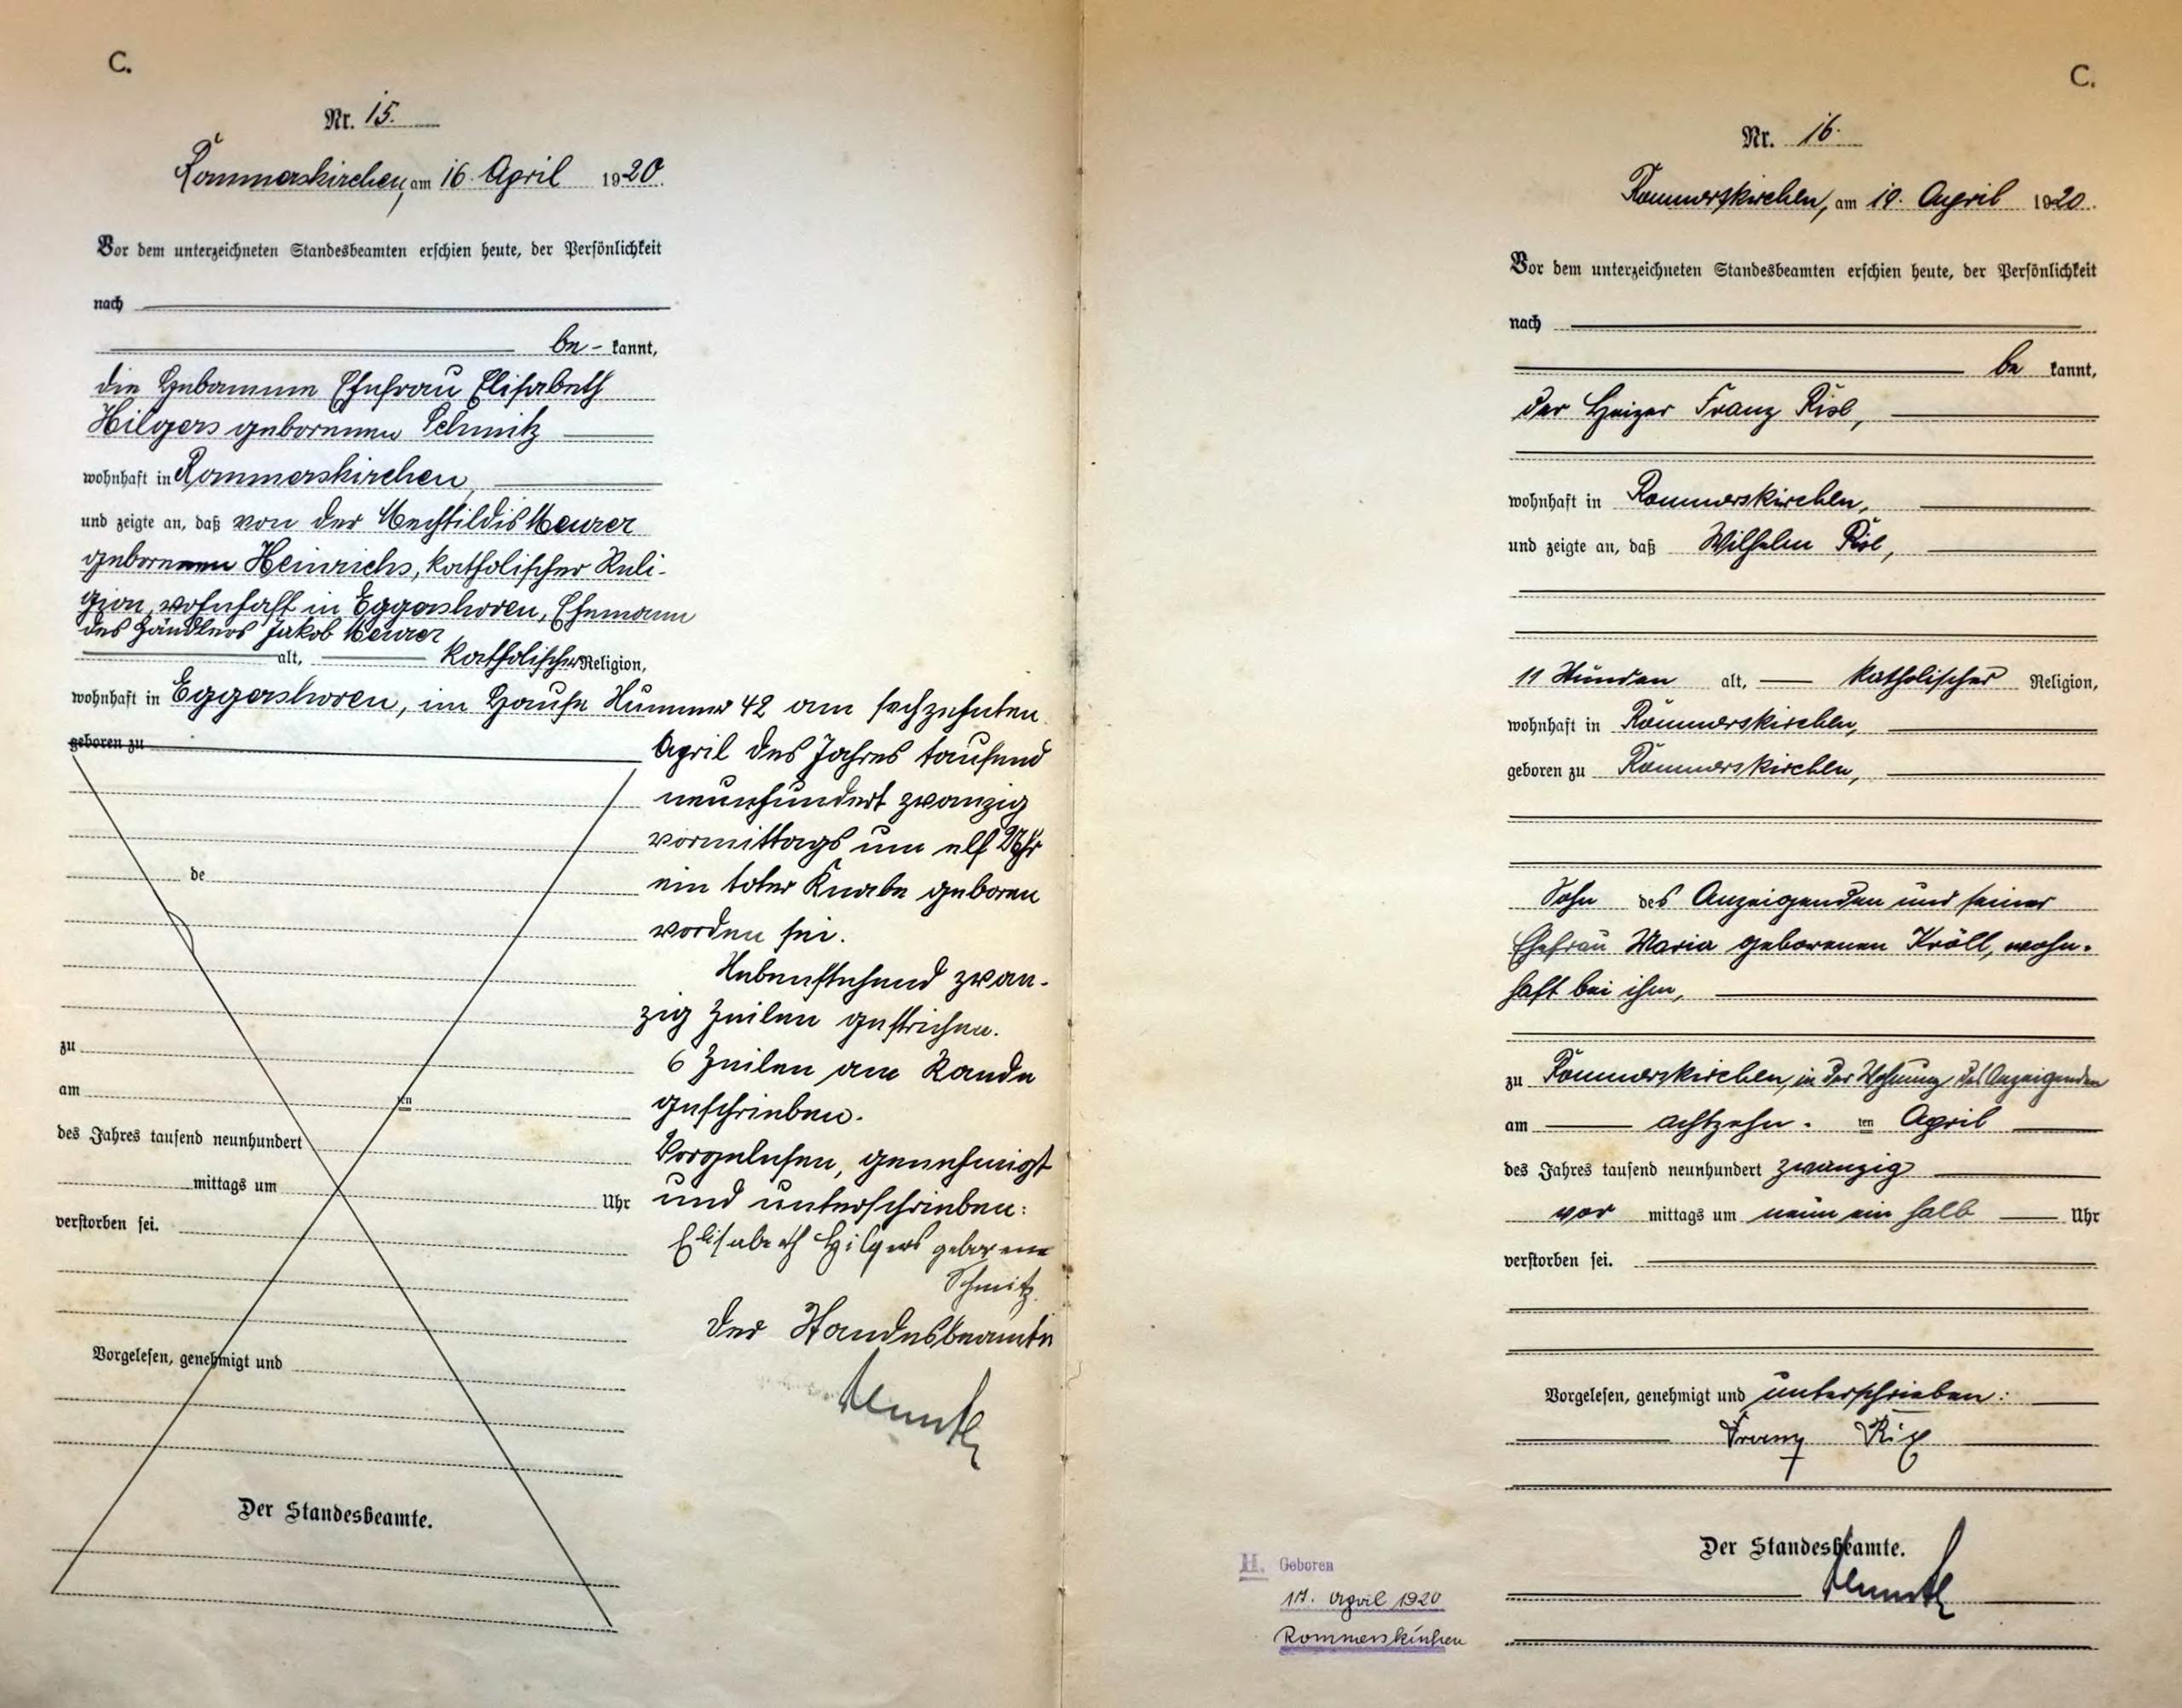 C.
Nr. 15.
Rommerskirchen, am 16. April 1920.
Vor dem unterzeichneten Standesbeamten erschien heute, der Persönlichkeit
nach
be- kannt,
die Hebamme Ehefrau Elisabeth
Hilgers geborenen Schmitz
wohnhaft in Rommerskirchen,
und zeigte an, daß von der Mechtildis Meurer
geborenen Heinrichs, katholischer Reli-
gion, wohnhaft in Eggershoven, Ehemann
des Händlers Jakob Meurer
alt, katholischer Religion,
wohnhaft in Eggershoven, im Hause Nummer 42 am sechzehnten
geboren zu
April des Jahres tausend
neunhundert zwanzig
vormittags um elf Uhr
de
ein toter Knabe geboren
worden sei.
Nebenstehend zwan-
zig Zeilen gestrichen.
zu
6 Zeilen am Rande
am ten
geschrieben.
des Jahres tausend neunhundert
Vorgelesen, genehmigt
mittags um Uhr
und unterschrieben:
verstorben sei.
Elisabeth Hilgers geborene
Schmitz
Der Standesbeamte
Vorgelesen, genehmigt und
Der Standesbeamte.
C.
Nr. 16.
Rommerskirchen, am 19. April 1920.
Vor dem unterzeichneten Standesbeamten erschien heute, der Persönlichkeit
nach
be kannt,
der Heizer Franz
wohnhaft in Rommerskirchen,
und zeigte an, daß Wilhelm
11 Stunden alt, katholischer Religion,
wohnhaft in Rommerskirchen,
geboren zu Rommerskirchen,
Sohn des Anzeigenden und seiner
Ehefrau Maria geborenen Kröll, wohn-
haft bei ihm,
zu Rommerskirchen, in der Wohnung des Anzeigenden
am achtzehn- ten April
des Jahres tausend neunhundert zwanzig
vor mittags um neun ein halb Uhr
verstorben sei.
Vorgelesen, genehmigt und unterschrieben:
Franz
Der Standesbeamte.
H. Geboren
17. April 1920
Rommerskirchen